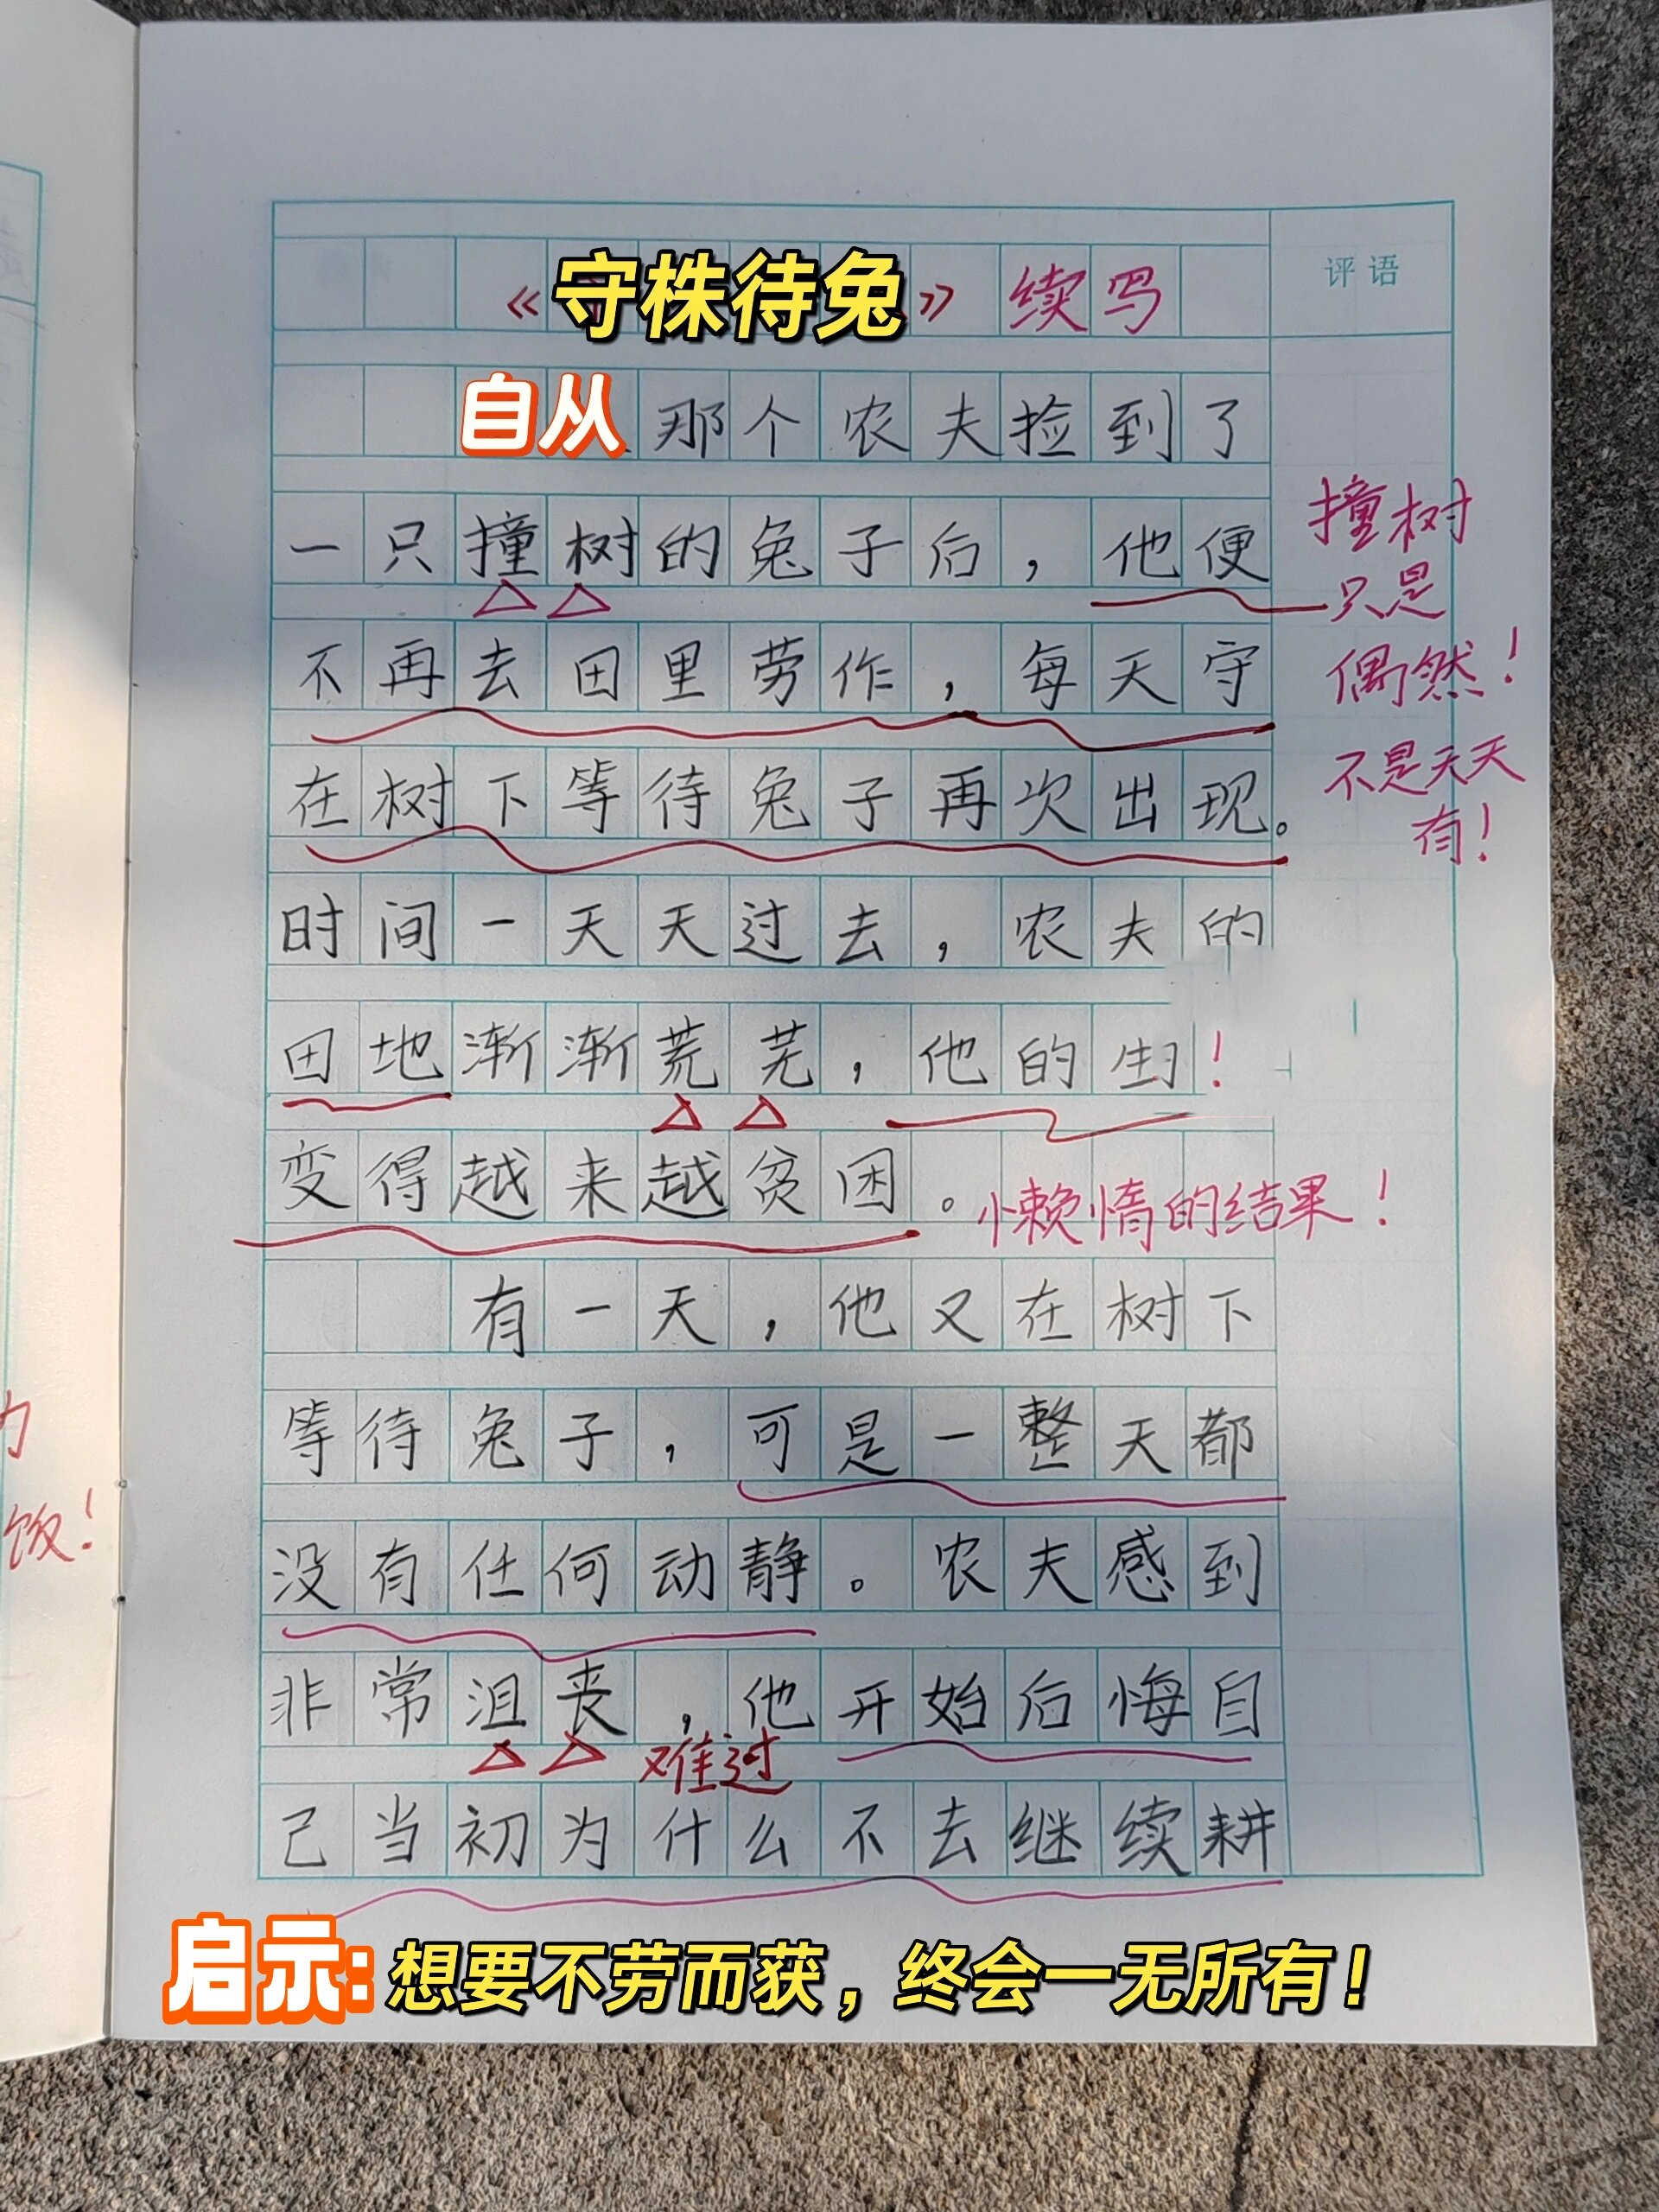 《守株待兔》续写
评语
自从那个农夫捡到了
一只撞树的兔子后，他便
不再去田里劳作，每天守
在树下等待兔子再次出现。
撞树
只是
偶然！
不是天天
有！
时间一天天过去，农夫的
田地渐渐荒芜，他的生！
变得越来越贫困。
懒惰的结果！
有一天，他又在树下
等待兔子，可是一整天都
没有任何动静。农夫感到
非常沮丧，他开始后悔自
难过
己当初为什么不去继续耕
饭！
启示：想要不劳而获，终会一无所有！